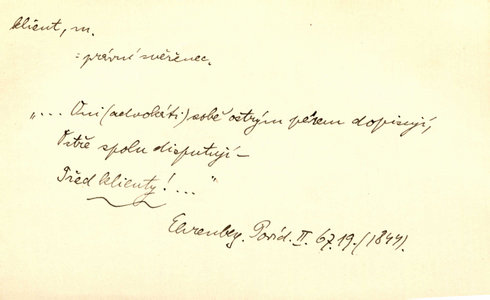 klient, m.
= právní svěřenec.
„... Oni (advokáti) sobě ostrým pérem dopisují,
Ostře spolu disputují –
Před klienty! ..."
Ehrenberg. Povíd. II. 67. 19. (1844).